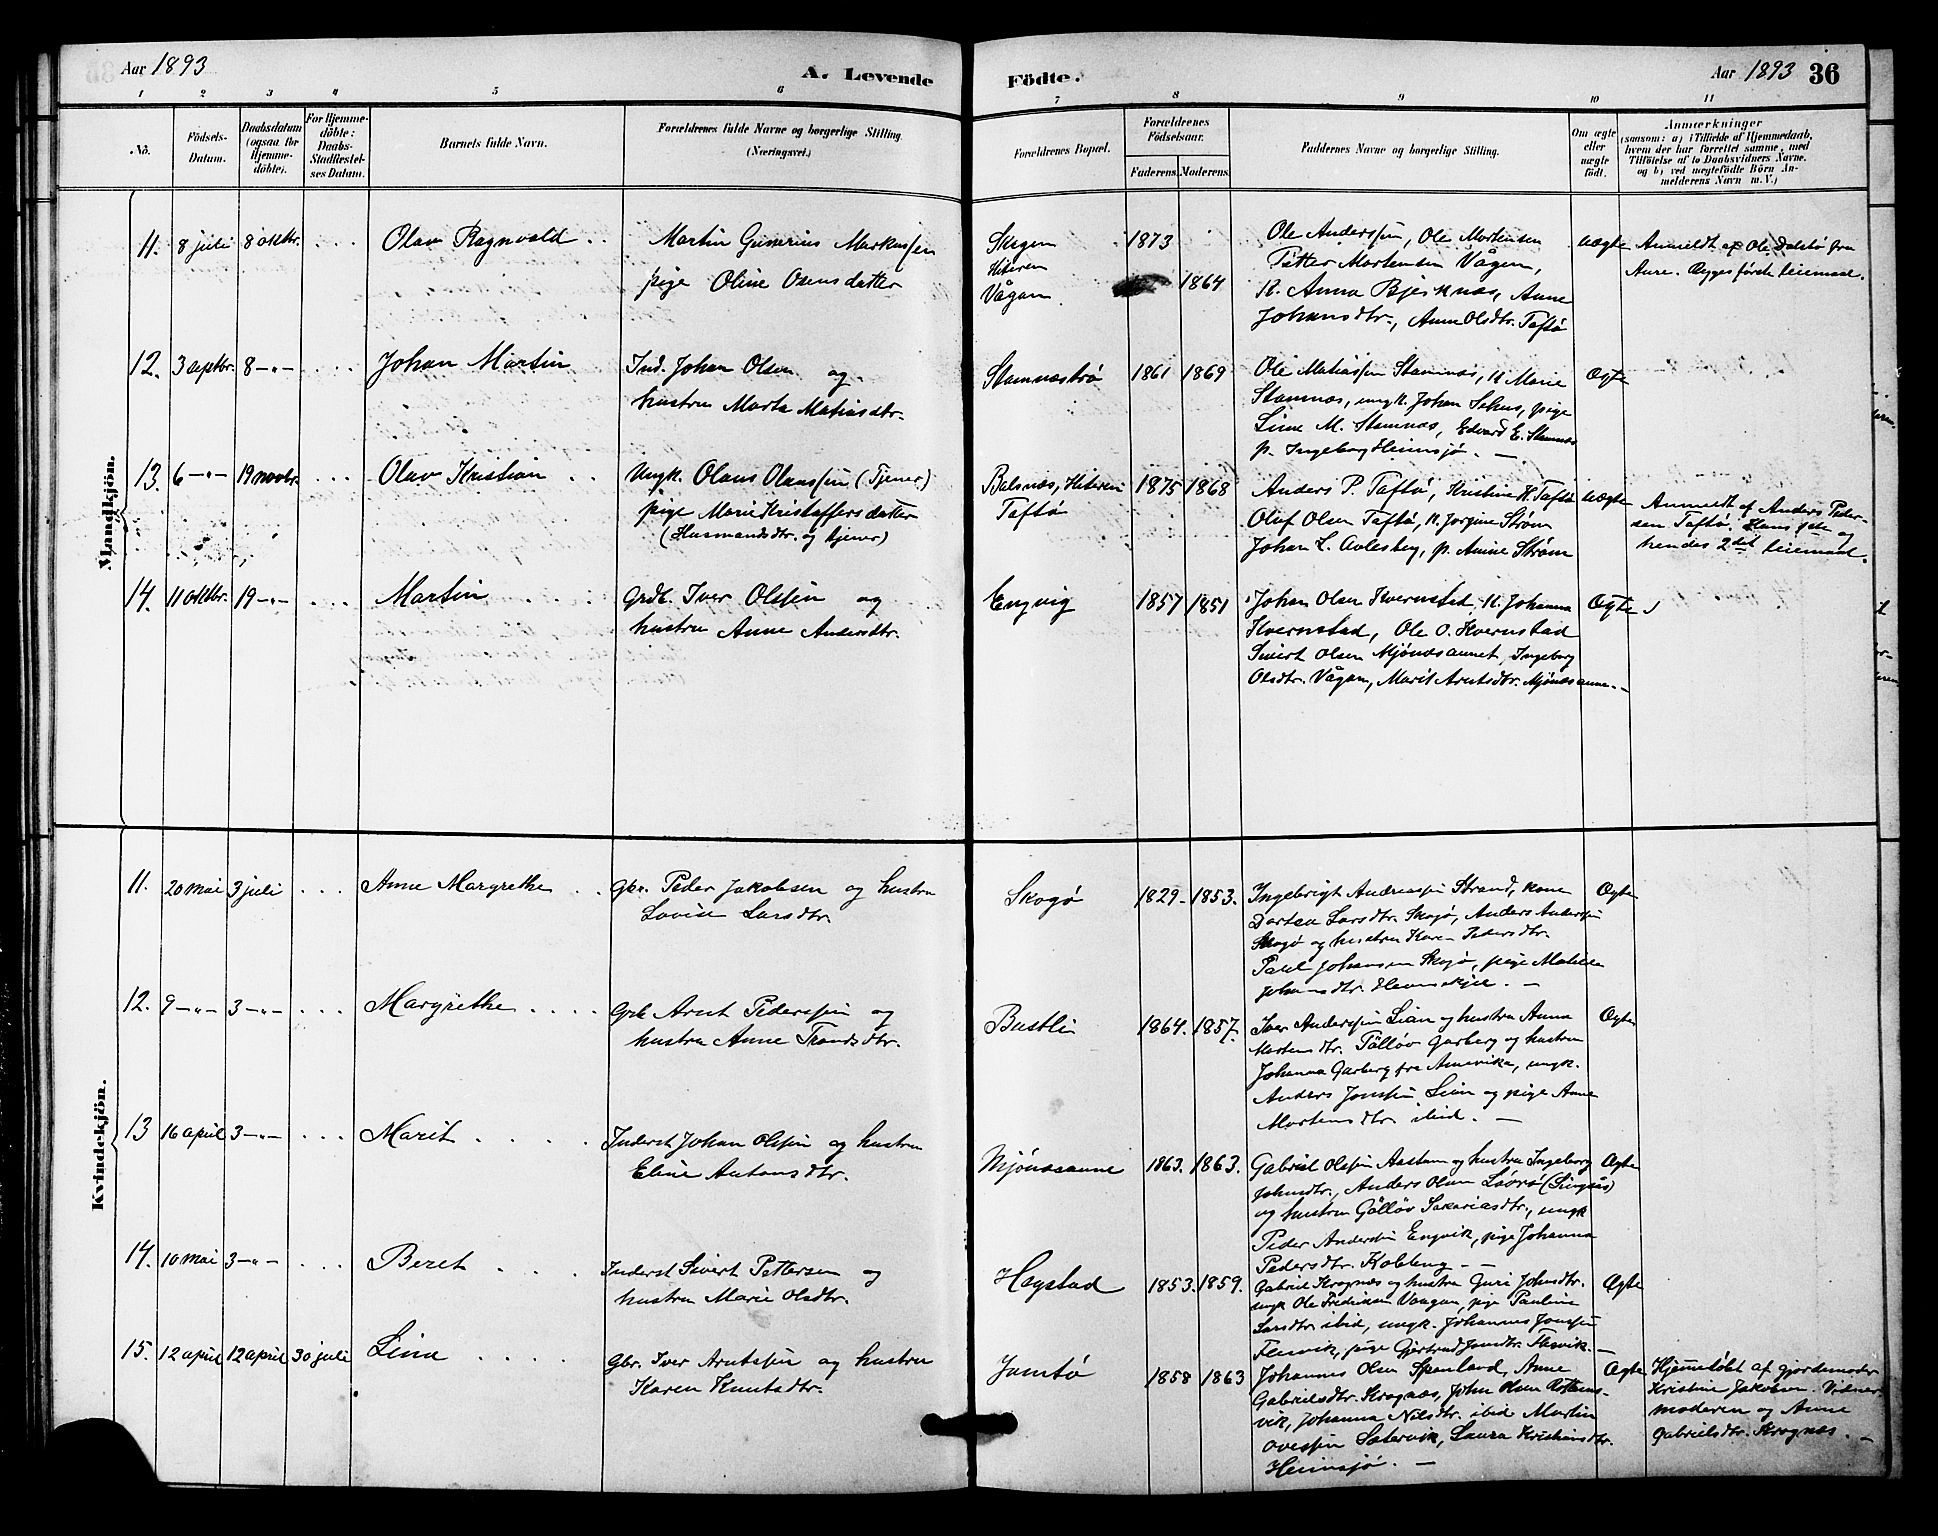 Aar 1893
A. Levende
Födte.
Aar 1893 36
1 2 3 4 5 6 7 8 9 10 11
No.
Födsels-
Datum.
Daabsdatum
(ogsaa for
Hjemme-
döbte).
For Hjemme-
döbte:
Daabs-
Stadfæstel-
ses Datum.
Barnets fulde Navn.
Forældrenes fulde Navne og borgerlige Stilling.
(Næringsvei.)
Forældrenes Bopæl.
Forældrenes
Födselsaar.
Faderens. Moderens.
Faddernes Navne og borgerlige Stilling.
Om ægte
eller
uægte
födt.
Anmærkninger
(saasom: a) i Tilfælde af Hjemmedaab,
hvem der har forrettet samme, med
Tilföielse af to Daabsvidners Navne,
og b) ved uægtefödte Börn An-
melderens Navn m. V.)
Mandkjön.
11. 8 juli 8 oktbr. . . . Olav Ragnvald . .
Martin Gunerius Markussen
pige Oline Osensdatter
Hiteren
Vågan
1873
1864
Ole Anderssen, Ole Mortensen
Petter Mortensen Vågen,
K. Anna Bjerknæs, Anne
Johansdtr., Anne Olsdtr. Taftø
uægte
Anmeldt af Ole Dalstø fra
Aure. Begges første leiermaal.
12. 3 septbr. 8 -"- . . . Johan Martin
Ind. Johan Olsen og
hustru Marta Matiasdtr.
Stamnæstrø
1861 1869
Ole Matiassen Stamnæs, K. Marie
Stamnæs, ungk. Johan Sehus, pige
Line M. Stamnæs, Edvard E. Stamnæs
p. Ingeborg Heimsjø. —
Ægte
13. 6 -"- 19 novbr. . . . Olav Kristian . .
Ungk. Olaus Olaussen (Tjener)
pige Marie Kristoffersdatter
(Husmandsdtr. og tjener)
Balsnæs, Hiteren
Taftø
1875 1868
Anders P. Taftø, Kristine K. Taftø
Oluf Olsen Taftø, K. Jorgine Strøm
Johan L. Avlesbug, p. Anne Strøm
uægte
Anmeldt af Anders Peder-
sen Taftø. Hans 1ste og
hendes 2det leiermaal.
14. 11 oktbr. 19 -"- . . . Martin . . . .
Grdb. Iver Olssen og
hustru Anne Andersdtr.
Engvig
1857 1851
Johan Olsen Kvernstad, K. Johanna
Kvernstad, Ole O. Kvernstad
Sivert Olsen Mjønæsaunet, Ingeborg
Olsdtr. Vågan, Marit Arntsdtr. Mjønæsaune. -
Ægte
Kvindekjön.
11. 20 mai 3 juli . . . Anne Margrethe . .
Gbr. Peder Jakobsen og hustru
Lovise Larsdtr.
Skogø
1829 - 1853.
Ingebrigt Andreassen Strand, kone
Dortea Larsdtr. Skogø, Anders Anderssen
Skogø og hustru Karen Pedersdtr.
Paul Johansen Skogø, pige Matilde
Johansdtr. Hevneskjel. —
Ægte
12. 9 -"- 3 -"- . . . Margrethe . . . .
Grb Arnt Pederssen og
hustru Anne Trondsdtr.
Bustli
1864. 1857.
Iver Anderssen Lian og hustru Anna
Mortensdtr. Tølløv Garberg og hustru
Johanna Garberg fra Amerika, ungk.
Anders Jonssen Lian og pige Anne
Mortensdtr ibid. —
Ægte
13 16 april 3 -"- . . . Marit . . . . .
Inderst Johan Olssen og hustru
Eline Antonsdtr.
Mjønæsaune
1863. 1863.
Gabriel Olssen Aastam og hustru Ingeborg
Johnsdtr., Anders Olsen Løvrø (Singsås)
og hustru Gølløv Sakariasdtr., ungk
Peder Anderssen Engvik, pige Johanna
Pedersdtr. Kobbeng. —
Ægte
14. 10 mai 3 -"- . . . Beret . . . .
Inderst Sivert Pettersen og
hustru Marie Olsdtr.
Hegstad
1853. 1859.
Gabriel Krognæs og hustru Guri Johnsdtr.
ungk Ole Fredriksen Vaagan, pige Pauline
Larsdtr ibid, ungk. Johannes Jonssen
Flesvik, pige Gjertrud Jonsdtr. Flesvik. —
Ægte
15. 12 april 12 april 30 juli Line . . . . .
Gbr. Iver Arntssen og hustru
Karen Knutsdtr.
Jamtø
1858 1863
Johannes Olsen Spenland, Anne
Gabrielsdtr. Krognæs, John Olsen Rottems-
vik, Johanna Nilsdtr. ibid Martin
Ovessen Sætervik, Laura Kristiansdtr.
Heimsjø. —
Ægte
Hjemmedøbt af gjordemoder
Kristine Jakobsen. Vidner
moderen og Anne
Gabrielsdtr. Krognæs. —